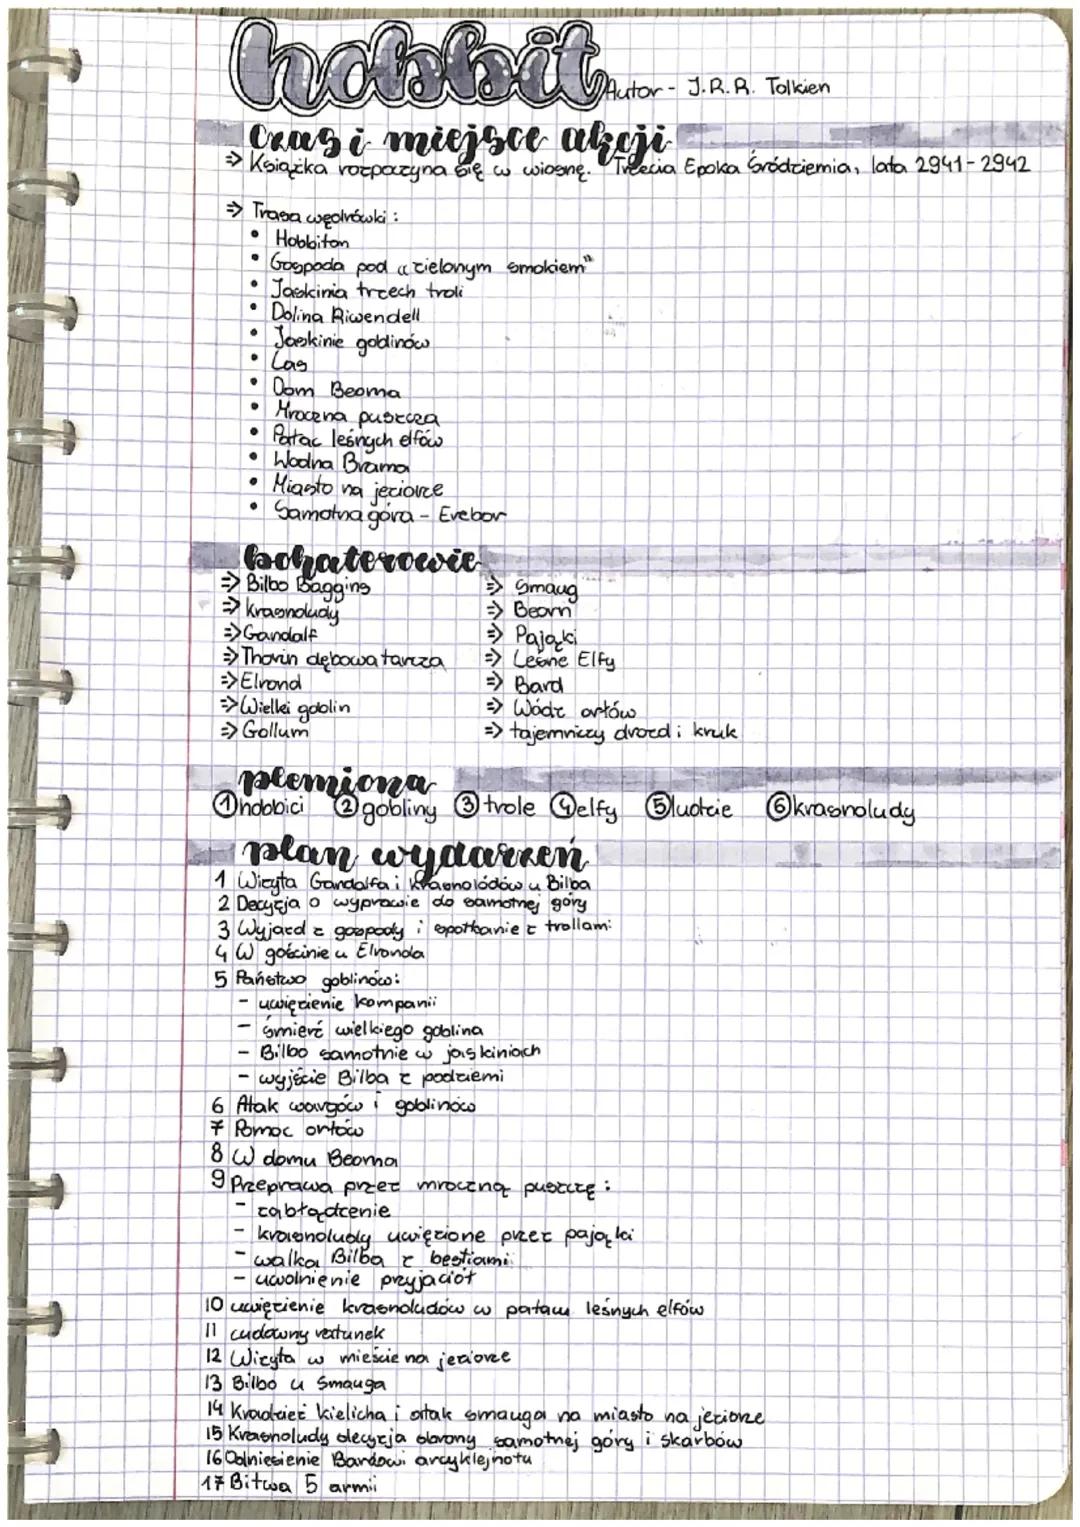 hobbit
Autor - J.R.R. Tolkien
Czas i miejsce akcji
⇒ Książka rozpoczyna się w wiosnę. Trzecia Epoka Śródziemia, lata 2941-2942
⇒ Trasa wędrówki:
• Hobbiton
• Gospoda pod "zielonym smokiem"
• Jaskinia trzech troli
• Dolina Riwendell
• Jaskinie goblinów
• Las
• Dom Beorna
• Mroczna puszcza
• Pałac leśnych elfów
• Wodna Brama
• Miasto na jeziorze
• Samotna góra - Erebor
bohaterowie
⇒ Bilbo Baggins
⇒ krasnoludy
⇒ Gandalf
⇒ Thorin dębowa tarcza
⇒ Elrond
⇒ Wielki goblin
⇒ Gollum
⇒ Smaug
⇒ Beorn
⇒ Pająki
⇒ Leśne Elfy
⇒ Bard
⇒ Wódz orłów
⇒ tajemniczy drozd i kruk
plemiona
① hobbici ② gobliny ③ trole ④ elfy ⑤ ludzie ⑥ krasnoludy
plan wydarzeń
1 Wizyta Gandalfa i krasnolódów u Bilba
2 Decyzja o wyprawie do samotnej góry
3 Wyjazd z gospody i spotkanie z trollami
4 W gościnie u Elronda
5 Państwo goblinów:
- uwięzienie kompanii
- śmierć wielkiego goblina
- Bilbo samotnie w jaskiniach
- wyjście Bilba z podziemi
6 Atak wargów i goblinów
7 Pomoc orłów
8 W domu Beorna
9 Przeprawa przez mroczną puszczę:
- zabłądzenie
- krasnoludy uwięzione przez pająki
- walka Bilba z bestiami
- uwolnienie przyjaciół
10 uwięzienie krasnoludów w pałacu leśnych elfów
11 cudowny ratunek
12 Wizyta w mieście na jeziorze
13 Bilbo u Smauga
14 Kradzież kielicha i atak smauga na miasto na jeziorze
15 Krasnoludy decyzja obrony samotnej góry i skarbów
16 Odniesienie Bardowi arcyklejnotu
17 Bitwa 5 armii